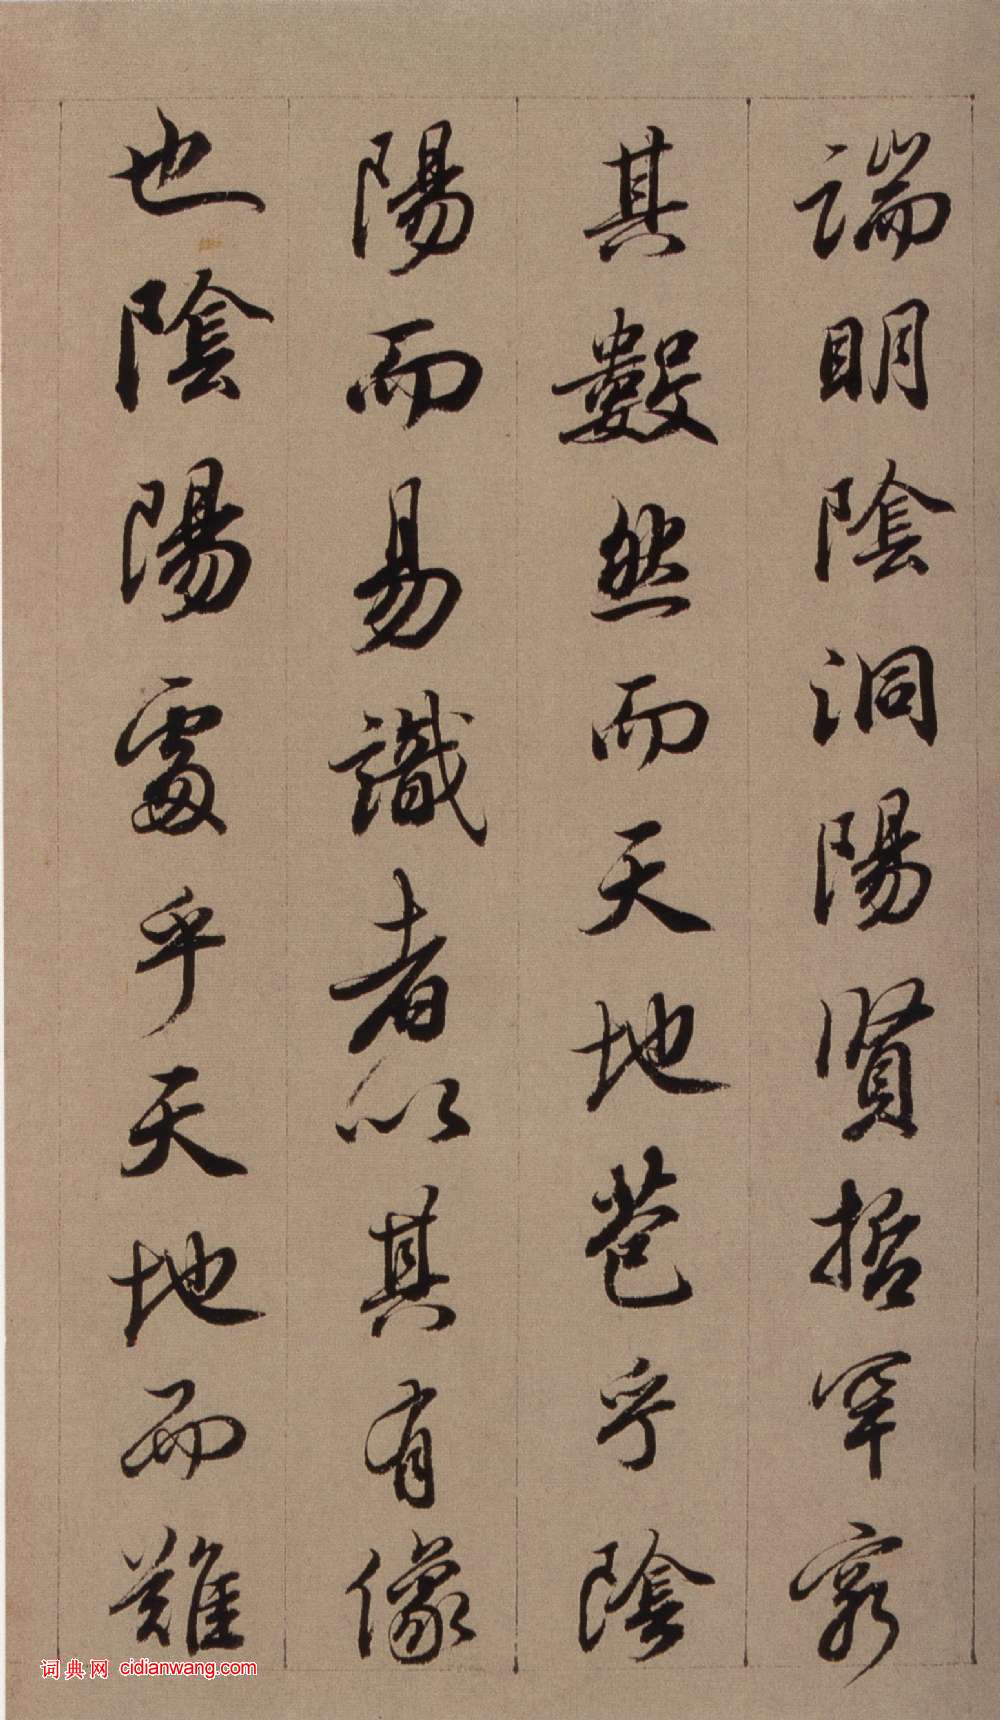 端明陰洞陽賢哲罕窮
其數然而天地苞乎陰
陽而易識者以其有像
也陰陽處乎天地而難
词典网 cidianwang.com